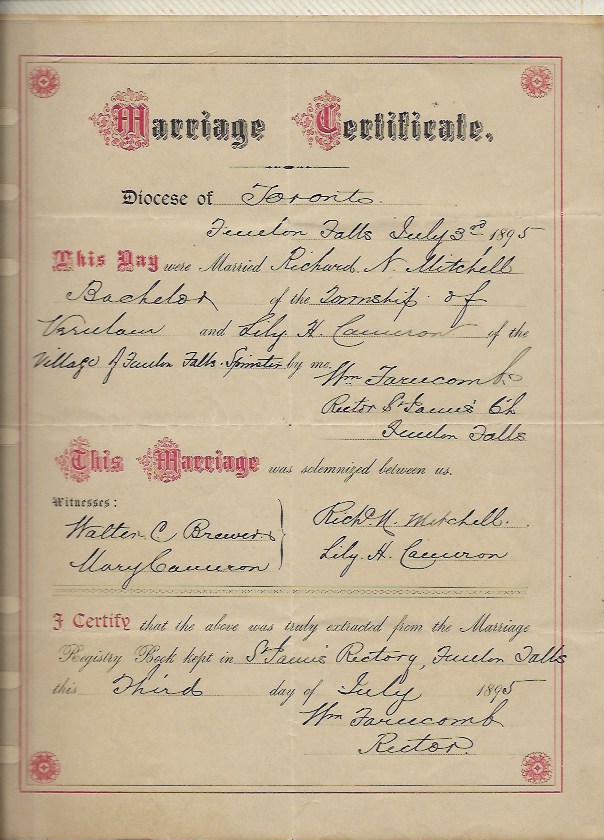 Marriage Certificate.
Diocese of Toronto.
Fenelon Falls July 3rd 1895
This Day were Married Richard N. Mitchell
Bachelor of the Township of
Verulam and Lily H. Cameron of the
Village of Fenelon Falls. Spinster by me.
Wm Farncomb
Rector St James' Ch
Fenelon Falls
This Marriage was solemnized between us.
Witnesses:
Walter C Brewer
Mary Cameron
Richd. N. Mitchell.
Lily. H. Cameron
I Certify that the above was truly extracted from the Marriage
Registry Book kept in St James Rectory, Fenelon Falls
this Third day of July 1895
Wm Farncomb
Rector.